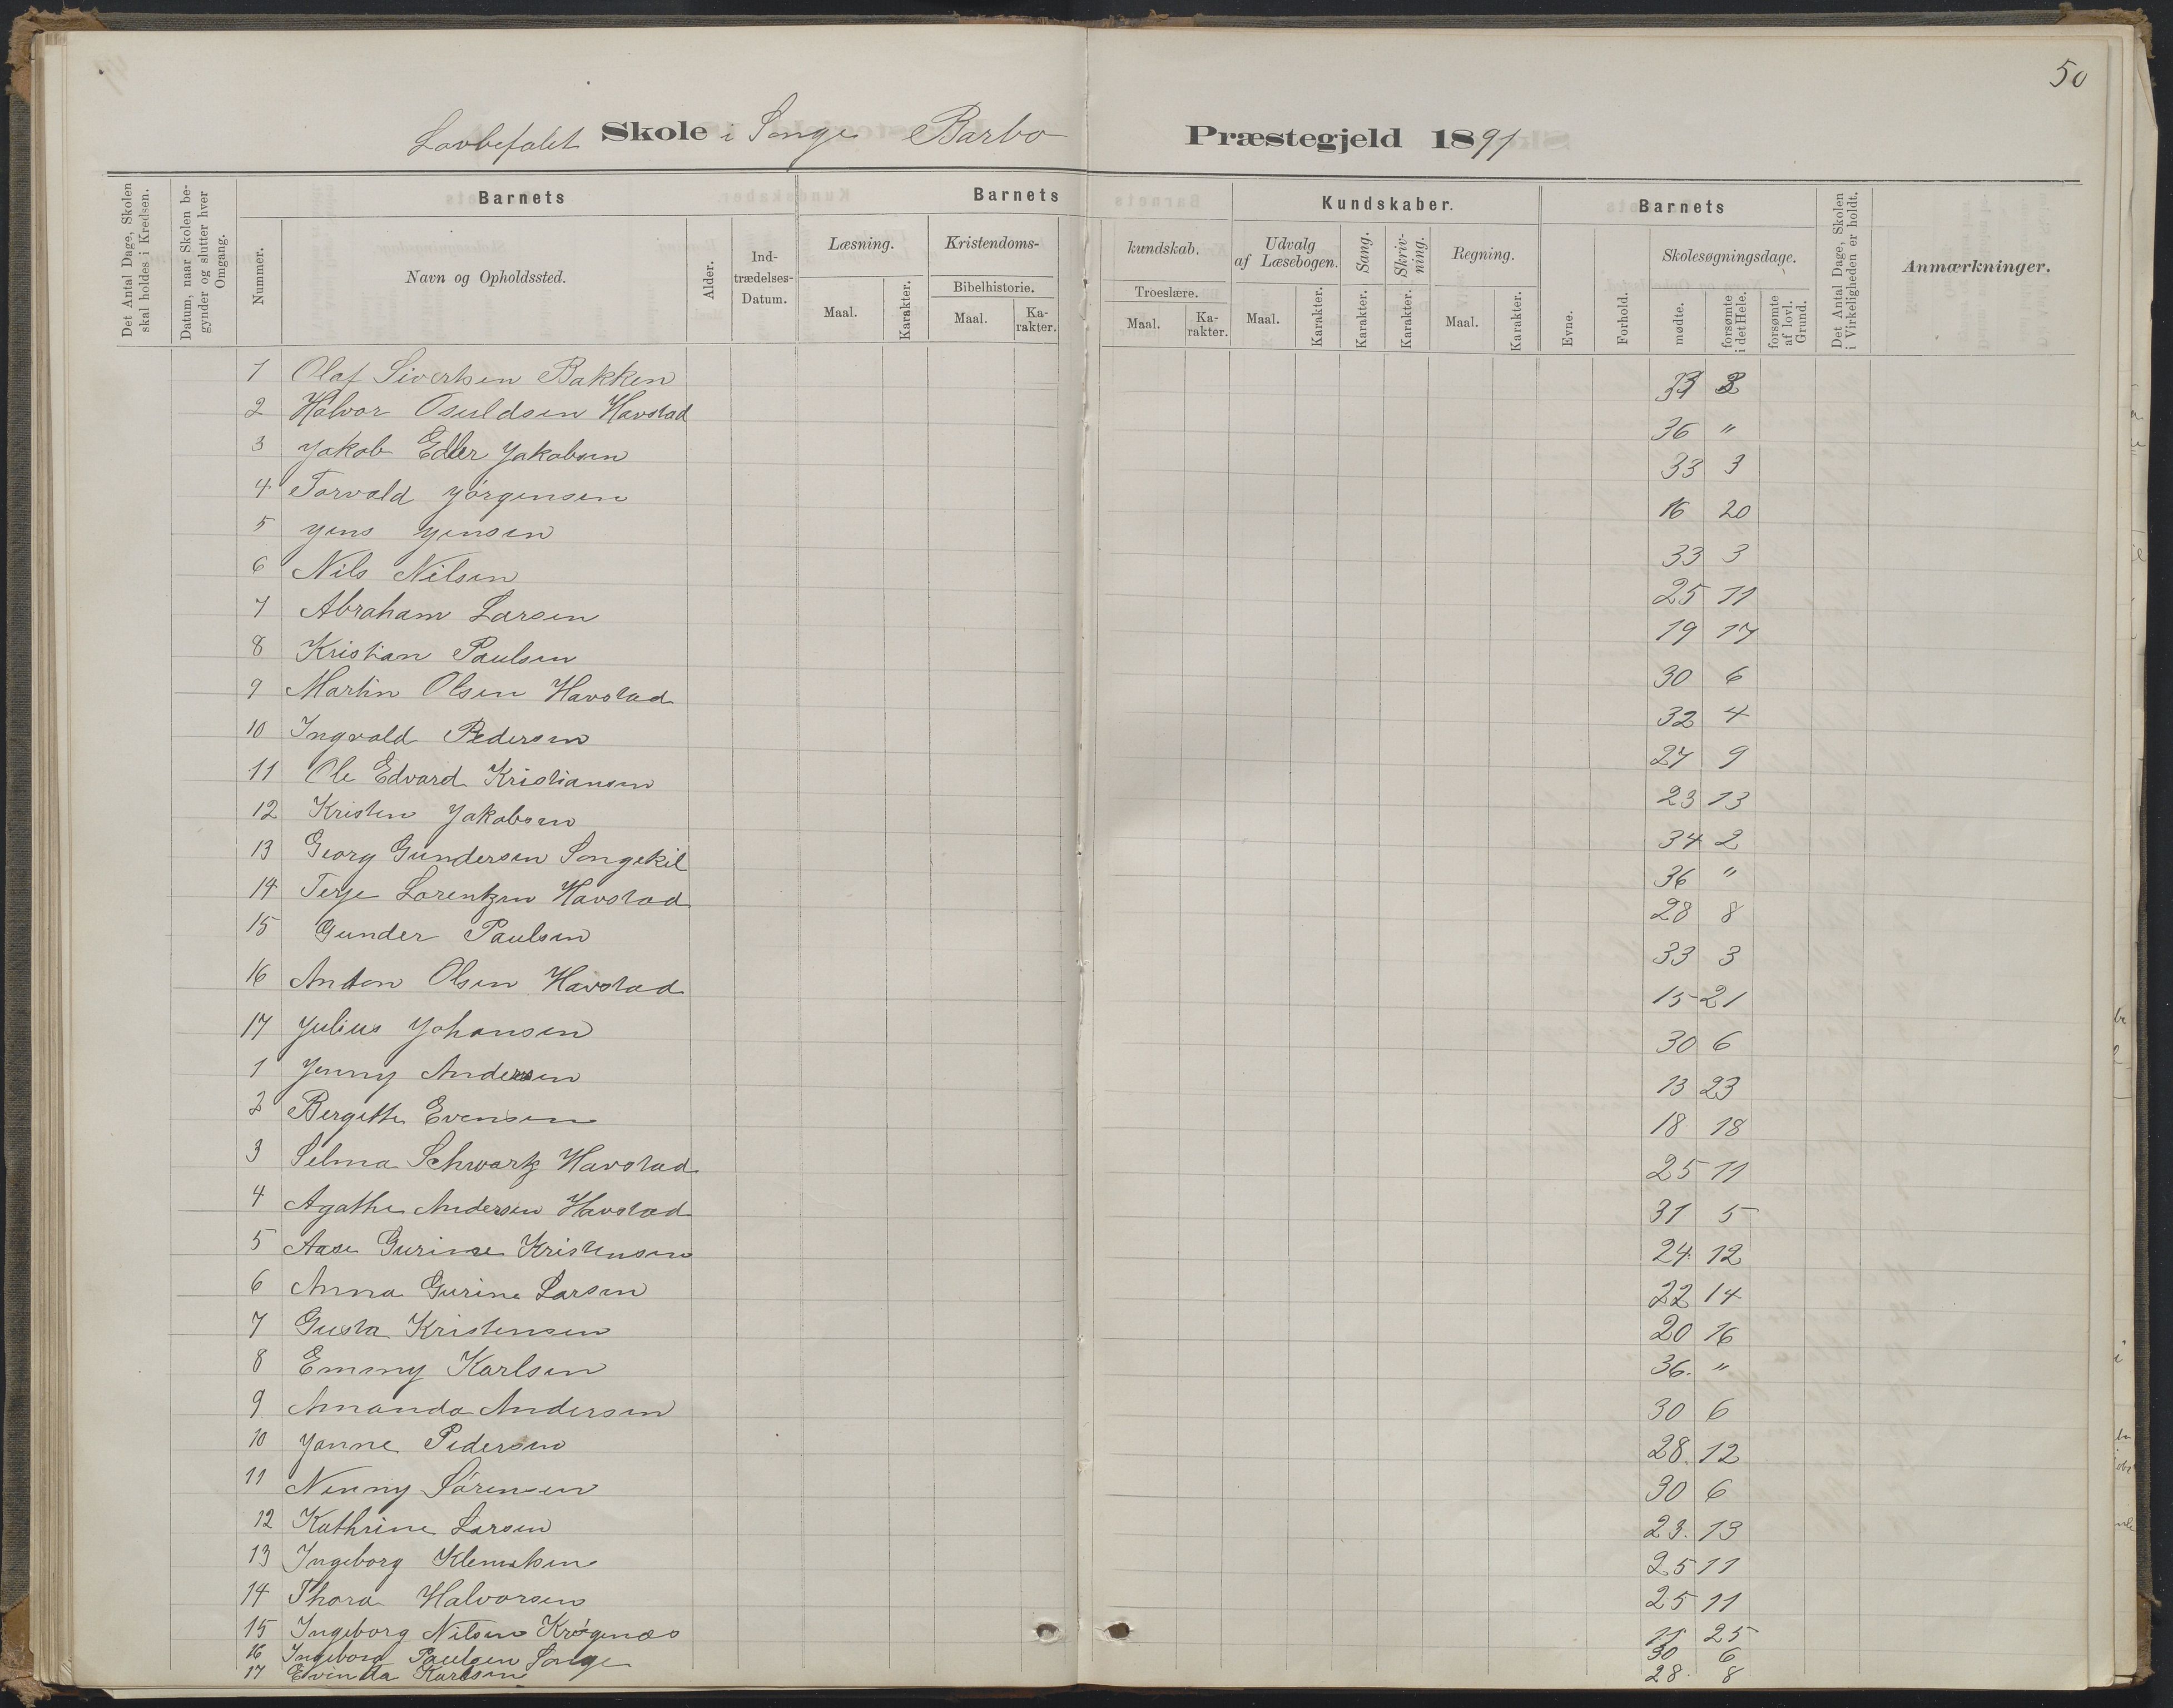 50
Lovbefalet Skole i Songe Barbo Præstegjeld 1891
Det Antal Dage, Skolen skal holdes i Kredsen.
Datum, naar Skolen begynder og slutter hver Omgang.
Nummer.
Barnets
Navn og Opholdssted.
Alder.
Ind-trædelses-Datum.
Barnets
Læsning.
Maal.
Karakter.
Kristendoms-
Bibelhistorie.
Maal.
Ka-rakter.
kundskab.
Troeslære.
Maal.
Ka-rakter.
Kundskaber.
Udvalg af Læsebogen.
Maal.
Karakter.
Sang.
Karakter.
Skriv-ning.
Karakter.
Regning.
Maal.
Karakter.
Barnets
Evne.
Forhold.
Skolesøgningsdage.
mødte.
forsømte i det Hele.
forsømte af lovl. Grund.
Det Antal Dage, Skolen i Virkeligheden er holdt.
Anmærkninger.
1 Olaf Sivertsen Bakken
2 Halvor Osuldsen Havstad 36 "
3 Jakob Edler Jakobsen 33 3
4 Torvald Jörgensen 16 20
5 Jens Jensen 33 3
6 Nils Nilsen 25 11
7 Abraham Larsen 19 17
8 Kristian Paulsen 30 6
9 Martin Olsen Havstad 32 4
10 Ingvald Pedersen 27 9
11 Ole Edvard Kristiansen 23 13
12 Kristen Jakobsen 34 2
13 Georg Gundersen Songekil 36 "
14 Terje Lorentzen Havstad 28 8
15 Gunder Paulsen 33 3
16 Anton Olsen Havstad 15 21
17 Julius Johansen 30 6
1 Jenny Andersen 13 23
2 Bergitte Evensen 18 18
3 Selma Schwartz Havstad 25 11
4 Agathe Andersen Havstad 31 5
5 Aase Gurine Kristensen 24 12
6 Anna Gurine Larsen 22 14
7 Gusta Kristensen 20 16
8 Emmy Karlsen 36. "
9 Amanda Andersen 30 6
10 Janne Pedersen 28. 12
11 Nenny Sörensen 30 6
12 Kathrine Larsen 23. 13
13 Ingeborg Klemetsen 25 11
14 Thora Halvorsen 25 11
15 Ingeborg Nilsen Krøgenæs 11 25
16 Ingeborg Paulsen Songe 30 6
17 Evinda Karlsen 28. 8